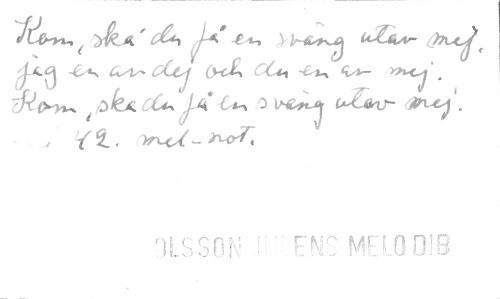 Kom, ska' du få en sväng utav mej,
jag en av dej och du en av mej.
Kom, ska du få en sväng utav mej.
42. mel-not.
OLSSON MELODIB